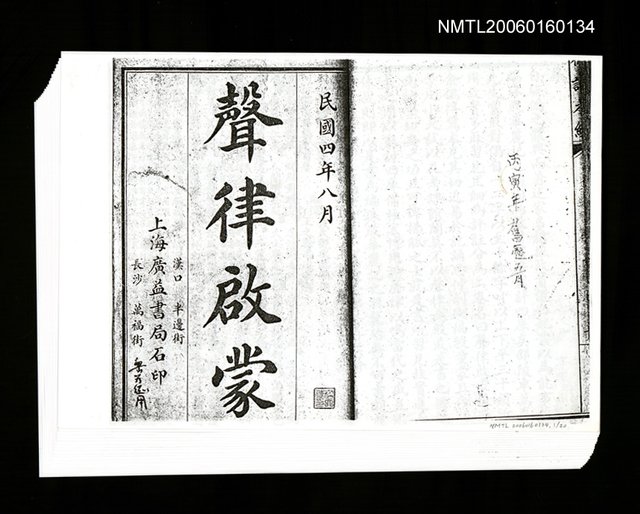 NMTL20060160134
丙寅年舊曆五月
民國四年八月
聲律啟蒙
上海廣益書局石印
漢口 半邊街
長沙 萬福街
NMTL 20060160134, 1/20